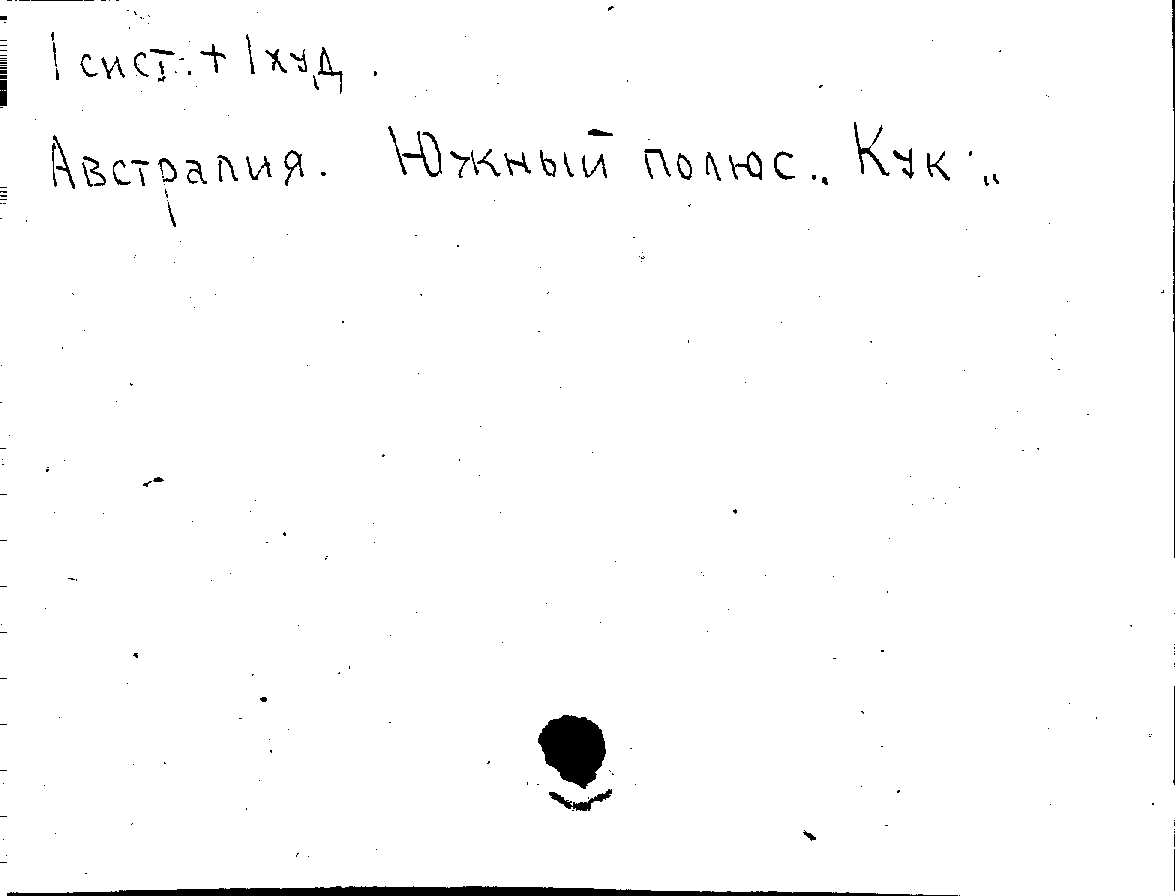 1 сист. + 1 худ.
Австралия. Южный полюс. Кук.